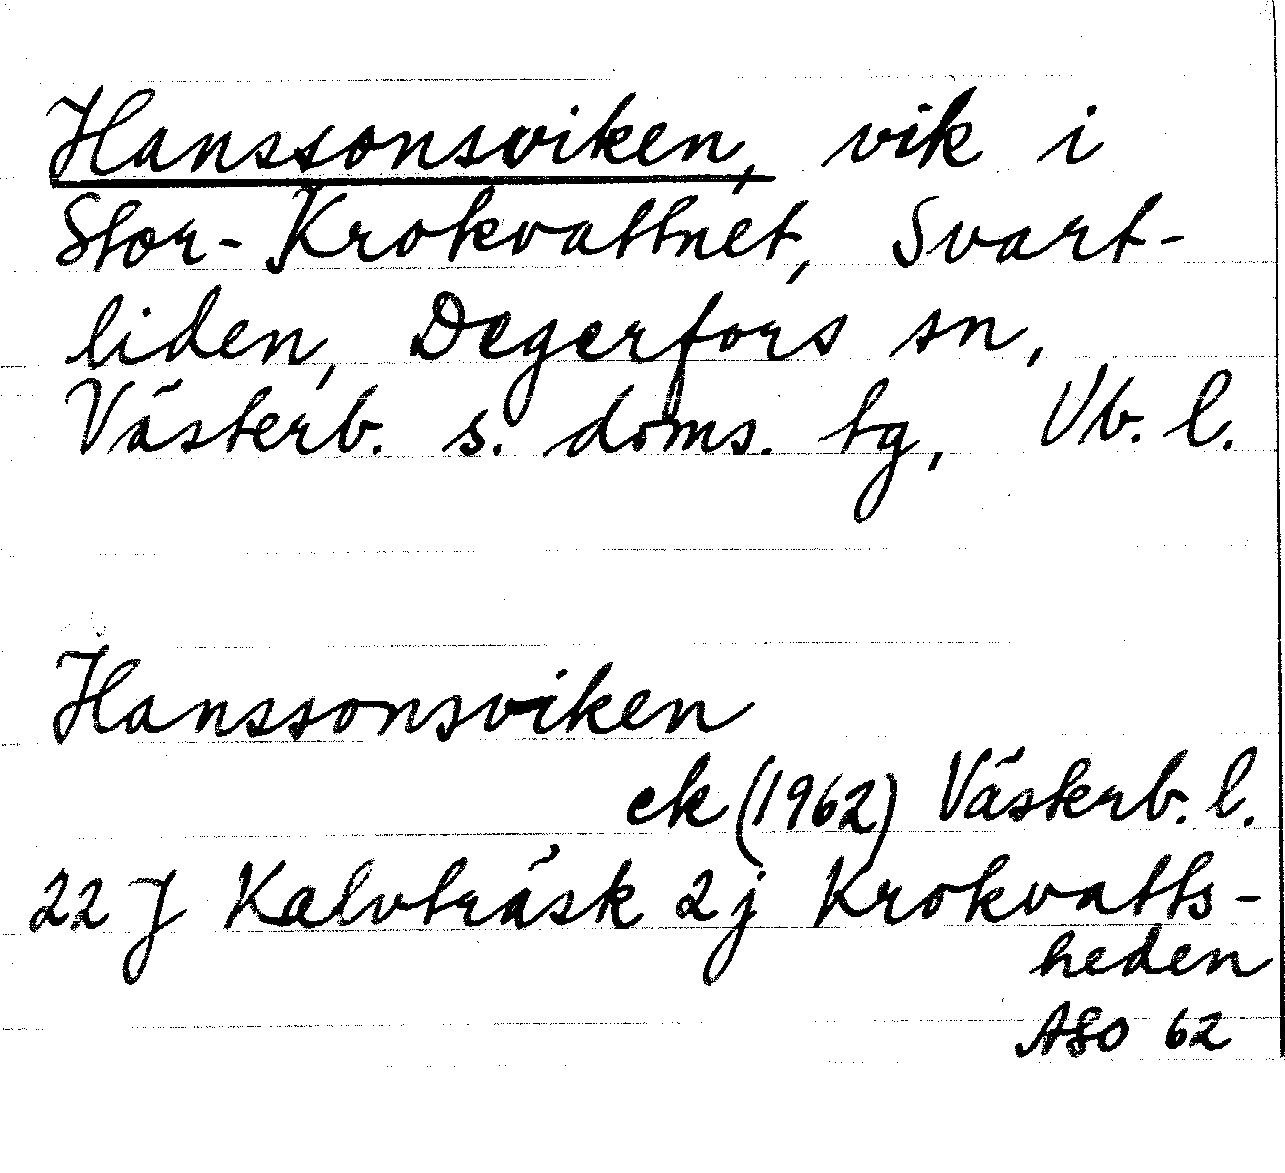 Hanssonsviken, vik i
Stor-Krokvattnet, Svart-
liden, Degerfors sn,
Västerb. s. doms. tg, Vb. l.
Hanssonsviken
ek (1962) Västerb. l.
22 J Kalvträsk 2j Krokvatts-
heden
ASO 62